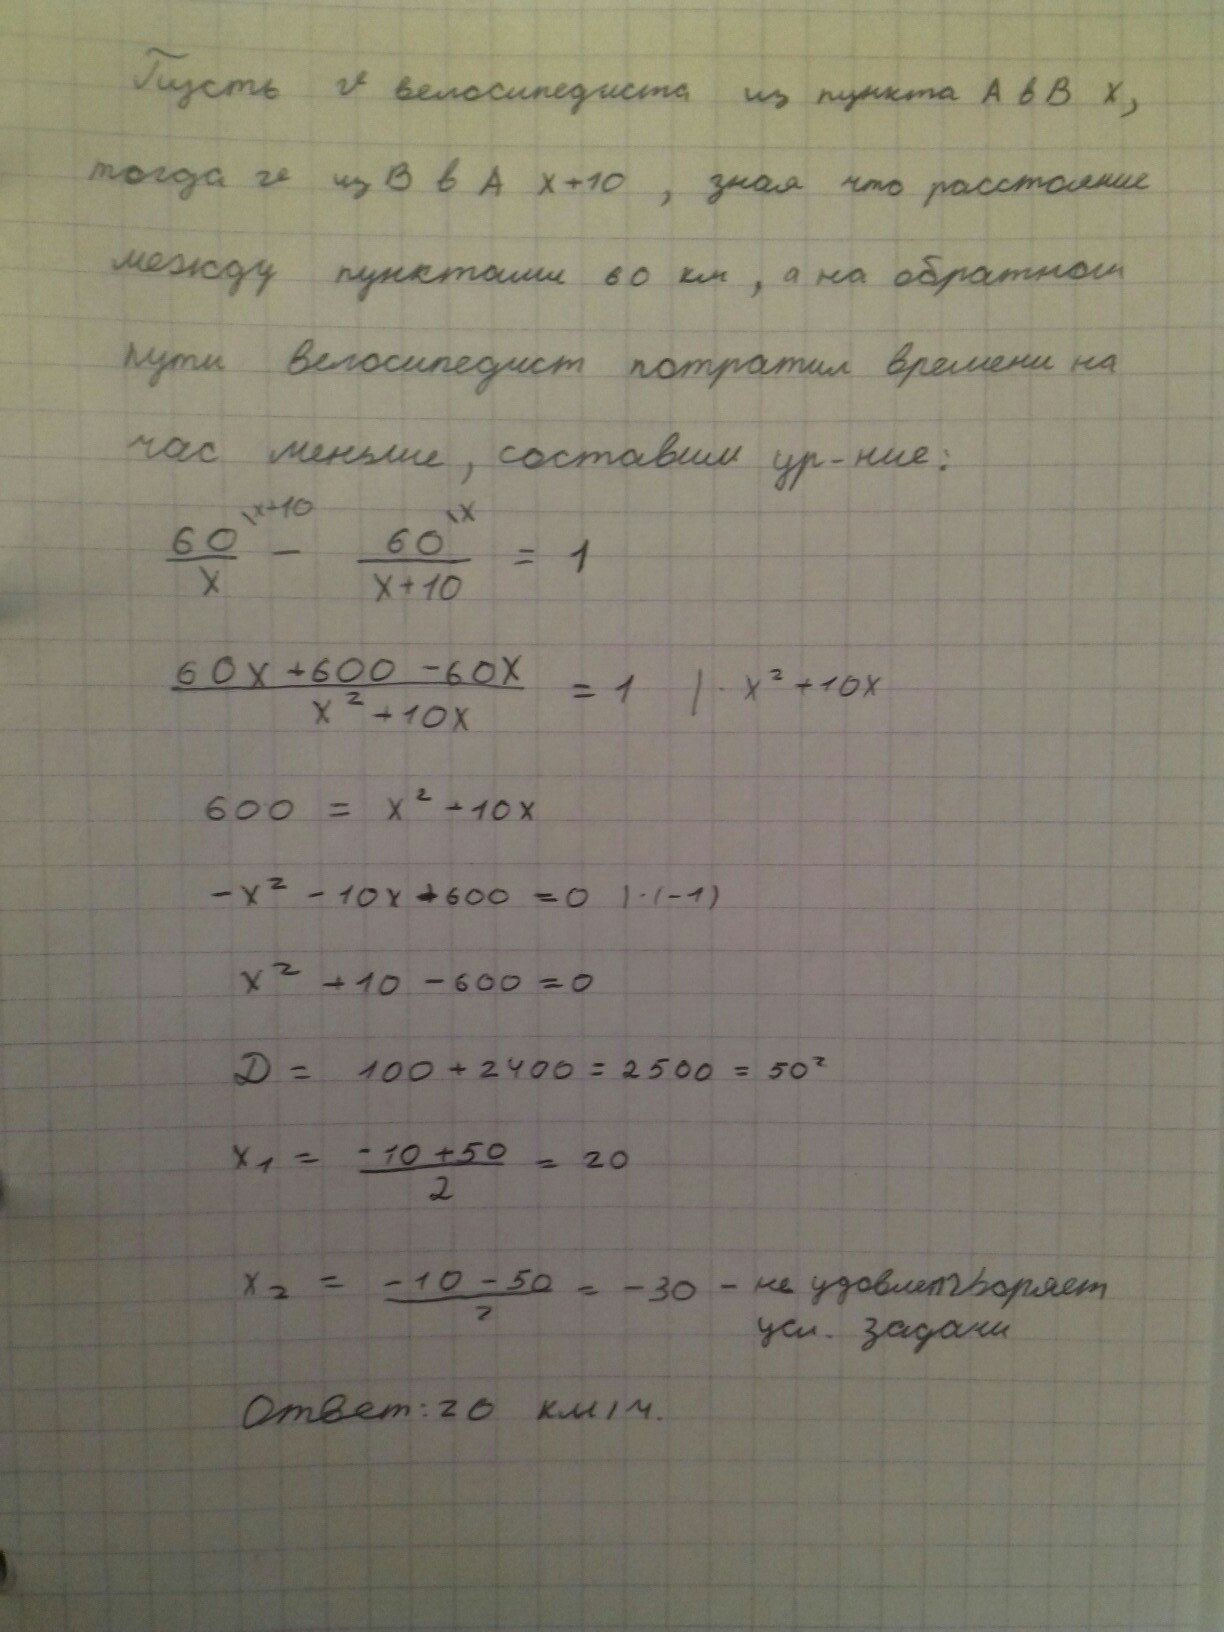 Пусть v велосипедиста из пункта А в В x,
тогда v из В в А x+10 , зная что расстояние
между пунктами 60 км , а на обратном
пути велосипедист потратил времени на
час меньше, составим ур-ние:
60/x \x+10 − 60/(x+10) \x = 1
(60x+600−60x)/(x²+10x) = 1 | · x²+10x
600 = x²+10x
−x² − 10x +600 =0 |·(−1)
x² +10 −600 =0
D = 100 + 2400 = 2500 = 50²
x₁ = (−10+50)/2 = 20
x₂ = (−10−50)/2 = −30 − не удовлетворяет
усл. задачи
Ответ: 20 км/ч.